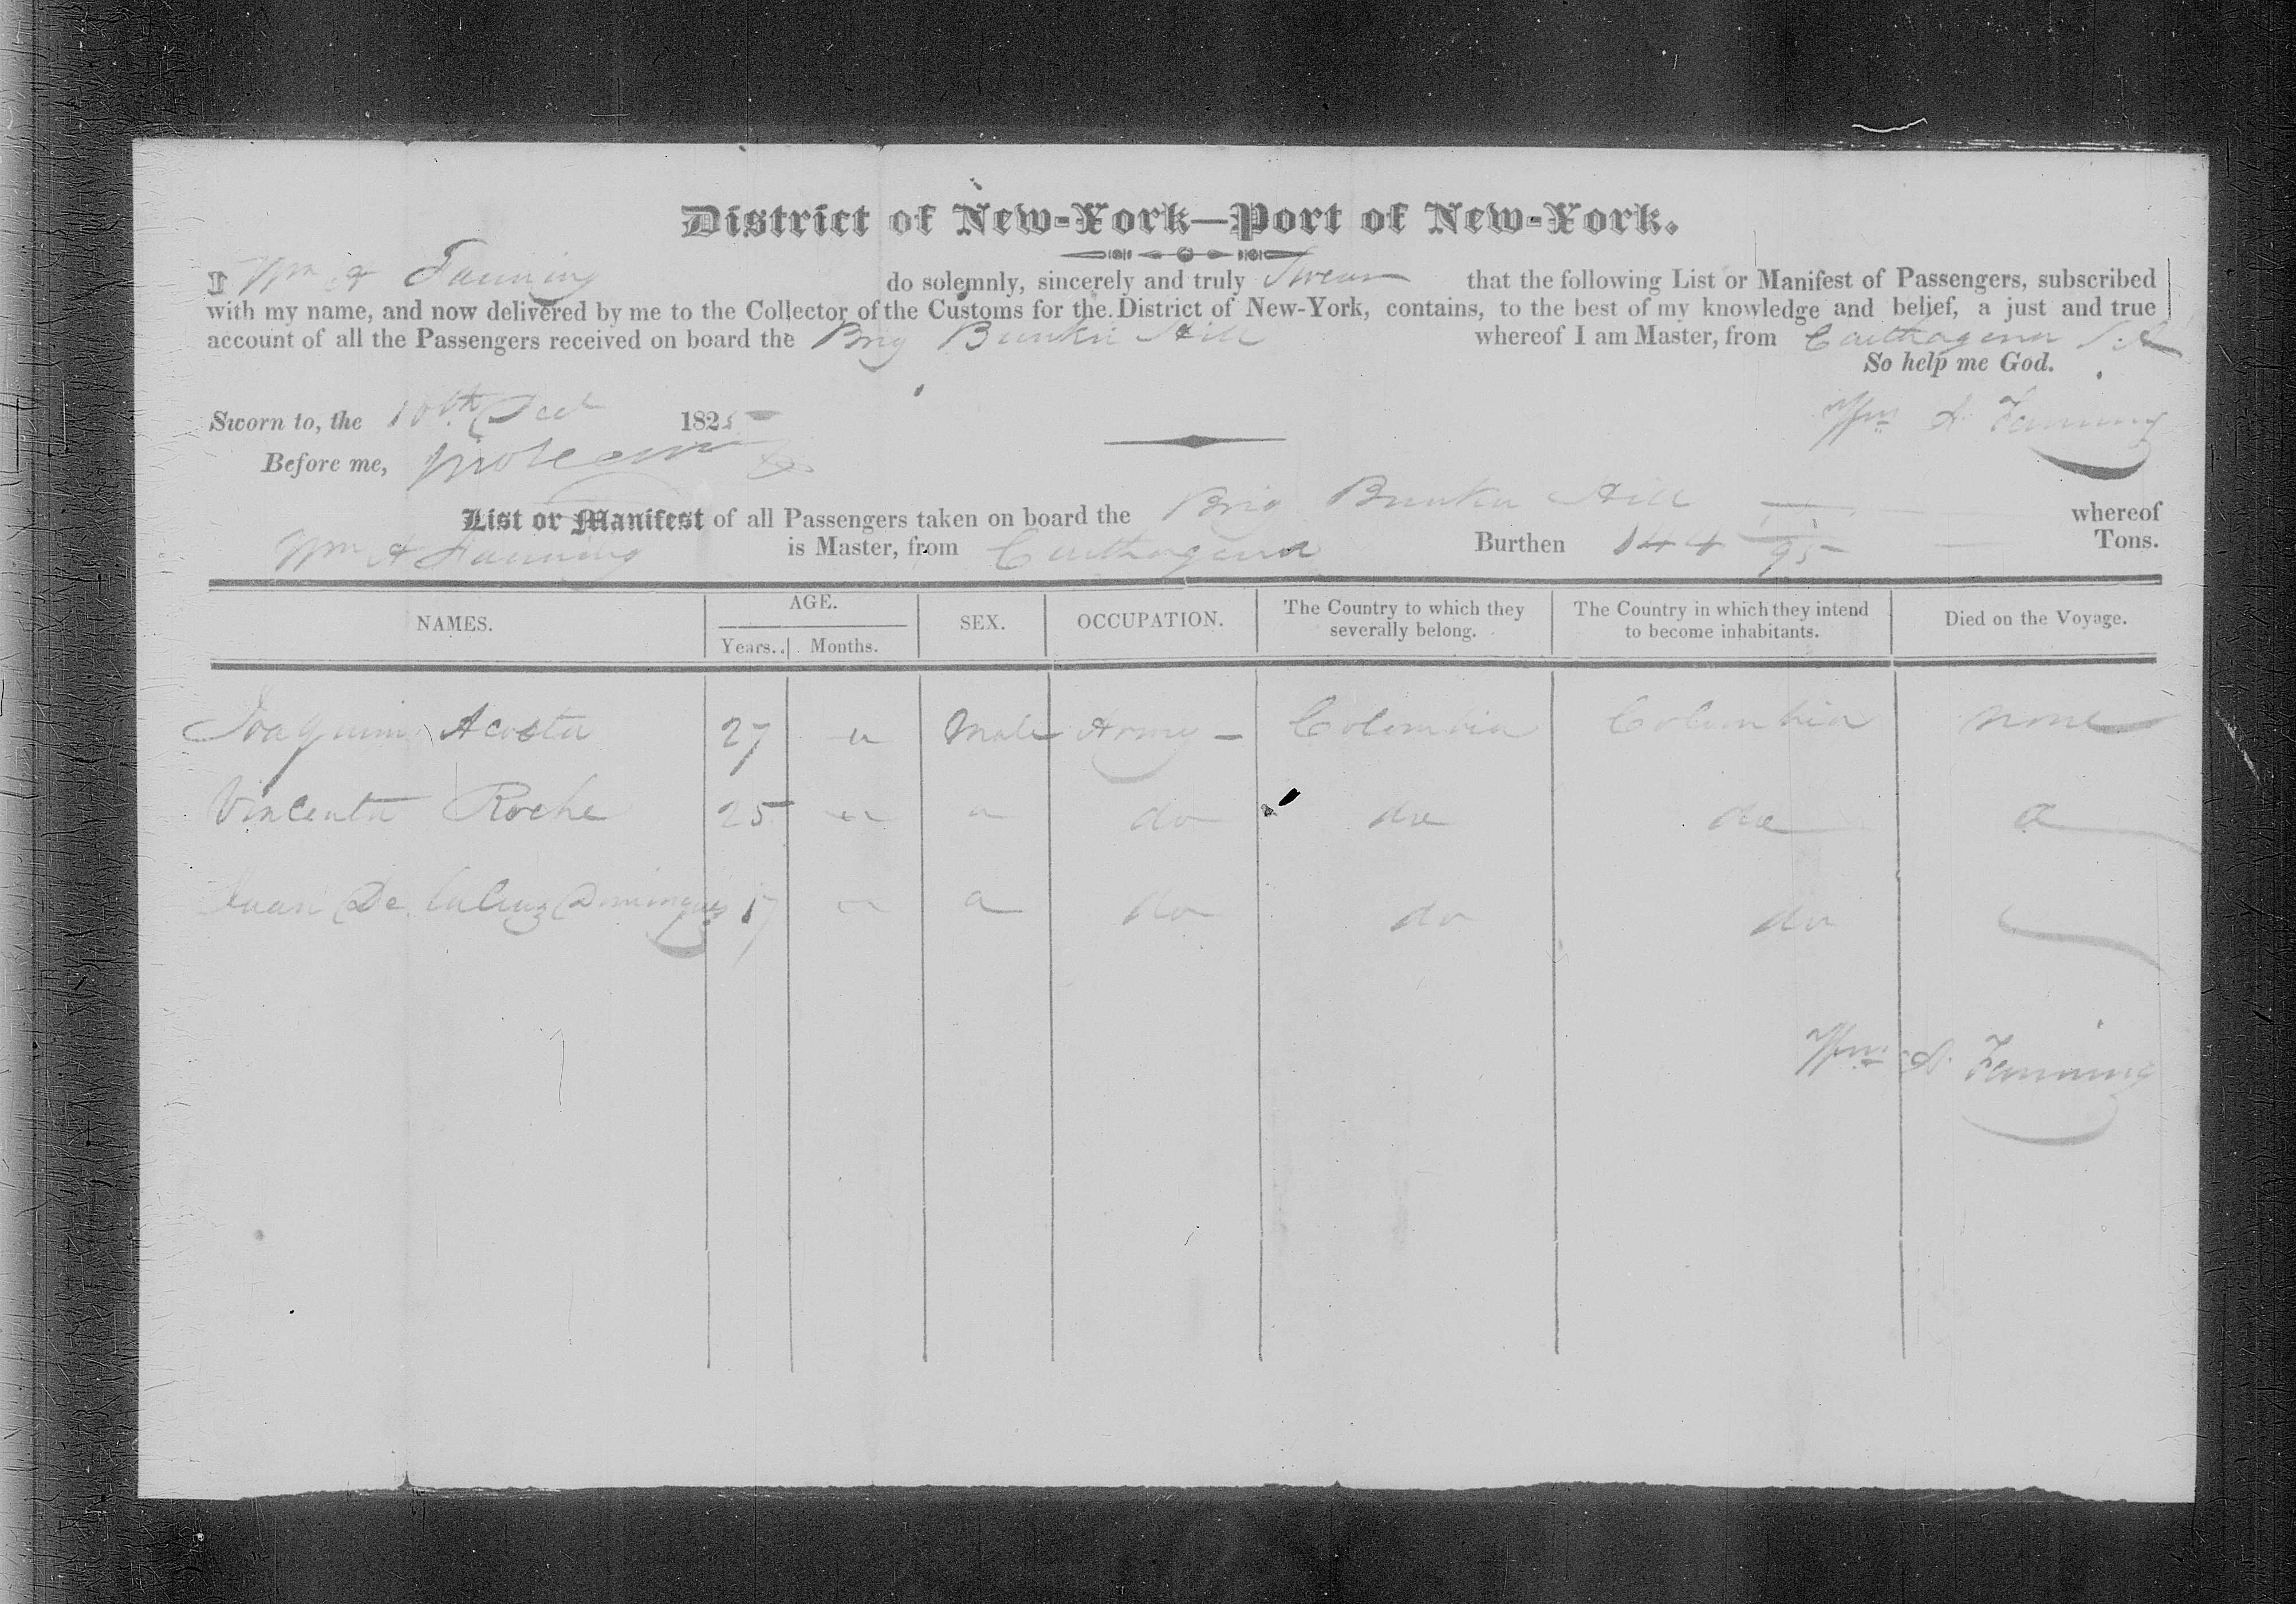 District of New-York—Port of New-York.
I Wm A Fanning do solemnly, sincerely and truly Swear that the following List or Manifest of Passengers, subscribed
with my name, and now delivered by me to the Collector of the Customs for the District of New-York, contains, to the best of my knowledge and belief, a just and true
account of all the Passengers received on board the Brig Bunker Hill whereof I am Master, from Carthagena
So help me God.
Sworn to, the 10th Decr 1825
Wm A. Fanning
Before me,
List or Manifest of all Passengers taken on board the Brig Bunker Hill whereof
Wm A Fanning is Master, from Carthagena Burthen 144 /95 Tons.
NAMES. AGE. Years. Months. SEX. OCCUPATION. The Country to which they severally belong. The Country in which they intend to become inhabitants. Died on the Voyage.
Joaquim Acosta 27 " Male Army - Colombia Columbia none
Vincenta Roche 25 " " do do do "
Juan De La Cruz Domingues 17 " " do do do
Wm A. Fanning